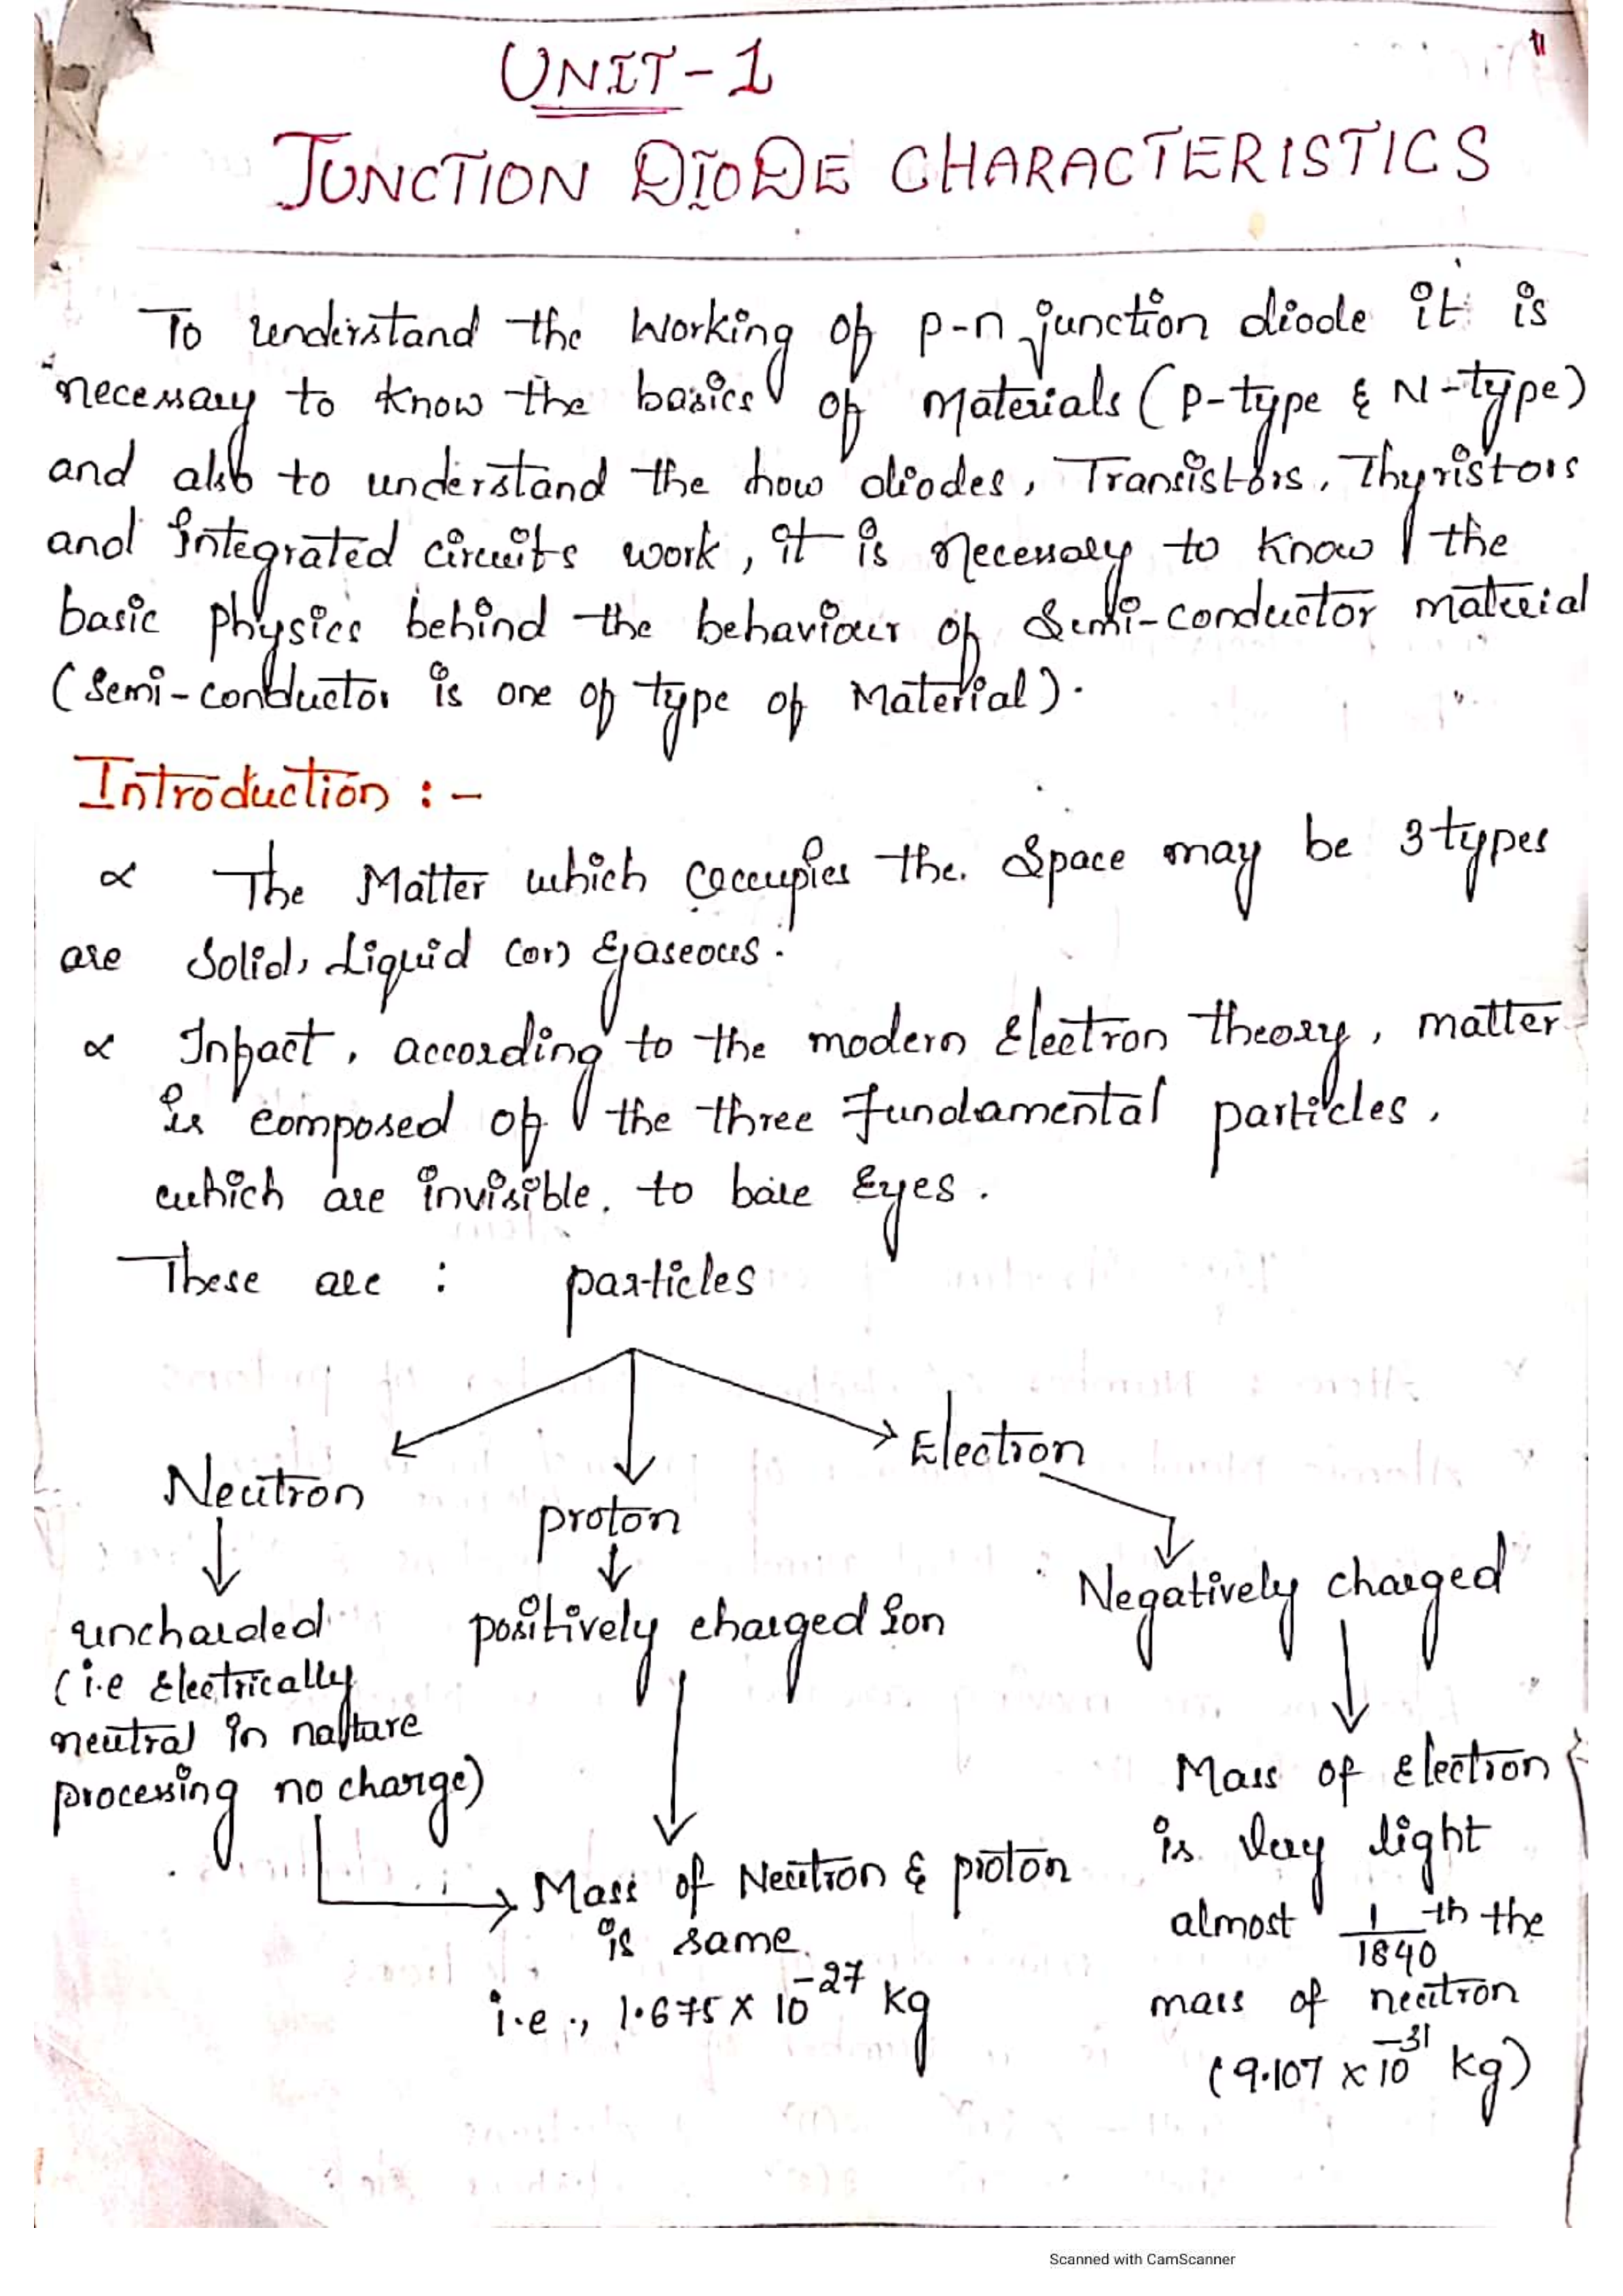 UNIT-1
JUNCTION DIODE CHARACTERISTICS
To understand the working of p-n junction diode it is
necessary to know the basics of Materials (P-type & N-type)
and also to understand the how diodes, Transistors, Thyristors
and integrated circuits work, it is necessary to know the
basic physics behind the behaviour of Semi-conductor material
(Semi-conductor is one of type of Material).
Introduction :-
∝ The Matter which occupies the Space may be 3 types
are Solid, Liquid (or) Gaseous.
∝ Infact, according to the modern Electron theory, matter
is composed of the three fundamental particles,
which are invisible. to bare Eyes.
These are : particles
Neutron
proton
Electron
uncharded
(i.e Electrically
neutral in nature
processing no charge)
positively charged ion
Negatively charged
Mass of Neutron & proton
is same.
i.e., 1.675 x 10^-27 kg
Mass of Electron
is Very light
almost 1/1840 th the
mass of neutron
(9.107 x 10^-31 kg)
Scanned with CamScanner